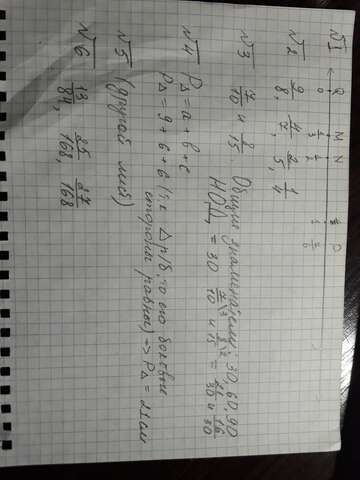 №1
Q M N D
0 1/3 1/2 1
№2 9/8, 4/7, 2/5, 1/4
№3 7/10 и 8/15. Общие знаменатели: 30, 60, 90
НОД = 30 7/10 и 8/15 = 21/30 и 16/30
№4 P△ = a + b + c
P△ = 9 + 6 + 6 (т.к. △ р/б, то его боковые
стороны равны) -> P△ = 21 см
№5 (другой лист)
№6 13/84, 25/168, 27/168